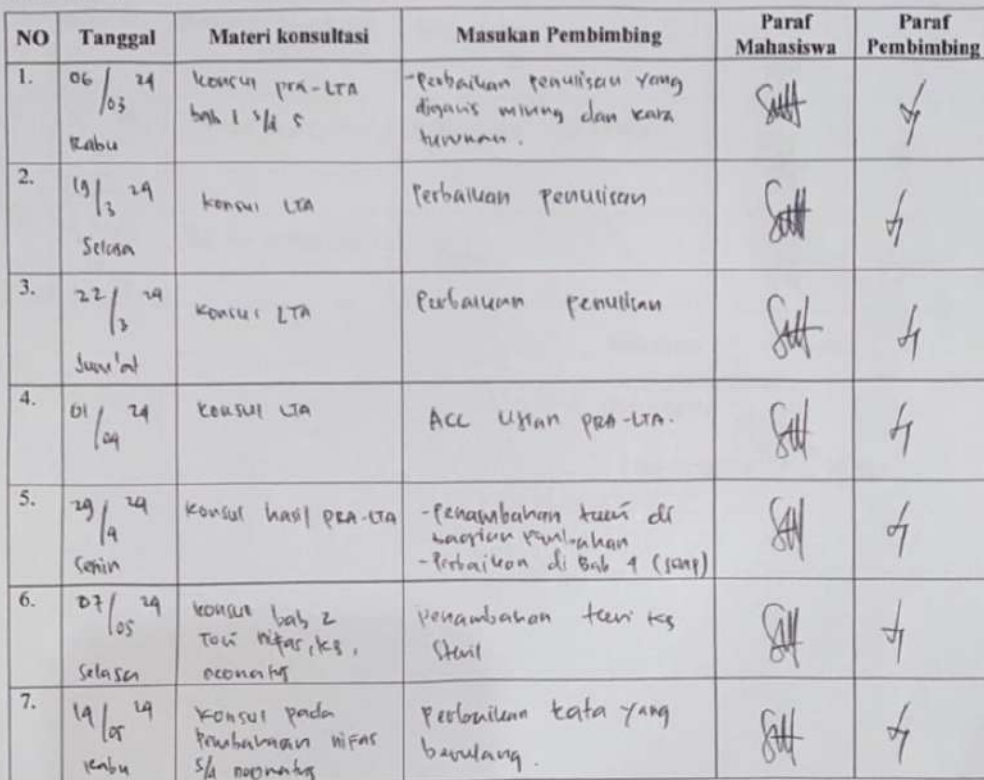 NO Tanggal Materi konsultasi Masukan Pembimbing Paraf Mahasiswa Paraf Pembimbing
1. 06/03 24 Rabu
konsul pra-LTA
bab 1 s/d 5
-Perbaikan penulisan yang
digaris miring dan kata
turunan.
2. 19/3 24 Selasa
konsul LTA
Perbaikan penulisan
3. 22/3 24 Jum'at
Konsul LTA
Perbaikan penulisan
4. 01/04 24
konsul LTA
ACC Ujian PRA-LTA.
5. 29/4 24 Senin
Konsul hasil PRA-LTA
-Penambahan teori di
bagian pembahasan
-Perbaikan di Bab 4 (soap)
6. 07/05 24 Selasa
konsul bab 2
Teori nifas, kb,
neonatus
penambahan teori kb
Steril
7. /05 24
Konsul pada
Pembahasan nifas
s/d neonatus
Perbaikan kata yang
berulang.